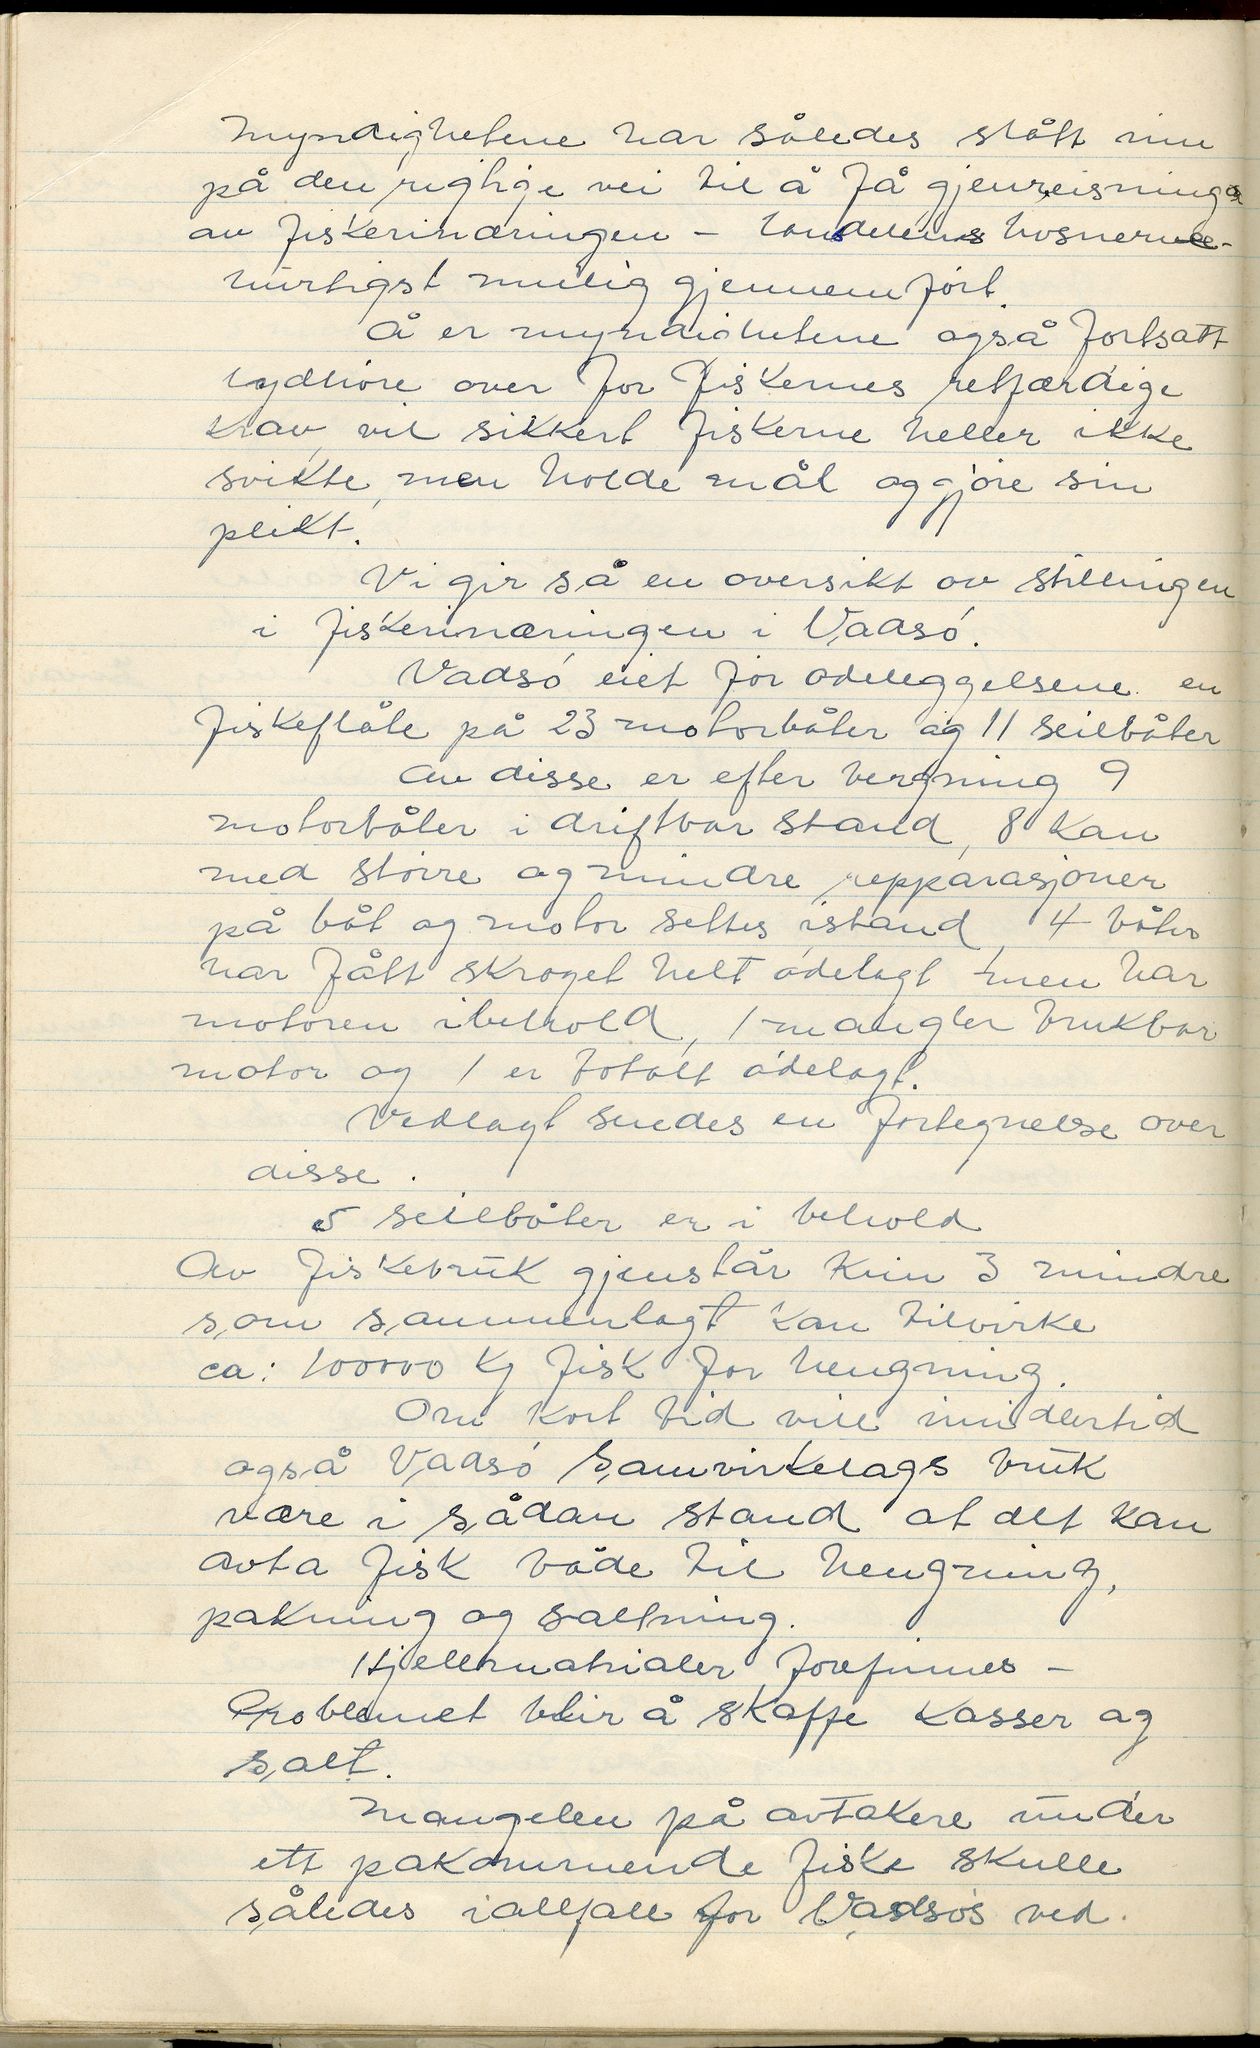 Myndighetene har således slått inn
på den rigtige vei til å få gjenreisningen
av fiskerinæringen – landsdelens
hurtigst mulig gjennemført.
Å er myndighetene også fortsatt
lydhøre over for fiskernes retfærdige
krav, vil sikkert fiskerne heller ikke
svikte, men holde mål og gjøre sin
plikt.
Vi gir så en oversikt av stillingen
i fiskerinæringen i Vadsø.
Vadsø eiet før ødeleggelsene en
fiskeflåte på 23 motorbåter og 11 seilbåter
Av disse er efter bergning 9
motorbåter i driftbar stand, 8 kan
med større og mindre repparasjoner
på båt og motor settes istand, 4 båter
har fått skroget helt ødelagt men har
motoren ibehold, 1 mangler brukbar
motor og 1 er totalt ødelagt.
Vedlagt sendes en fortegnelse over
disse.
5 seilbåter er i behold
Av fiskebruk gjenstår kun 3 mindre
som sammenlagt kan tilvirke
ca: 100000 kg fisk for hengning.
Om kort tid vill imidlertid
også Vadsø Samvirkelags bruk
være i sådan stand at det kan
avta fisk både til hengning,
pakning og saltning.
Hjellmatrialer forefinnes –
Problemet blir å skaffe kasser og
salt.
Mangelen på avtakere under
ett påkommende fiske skulle
således iallfall for Vadsøs ved